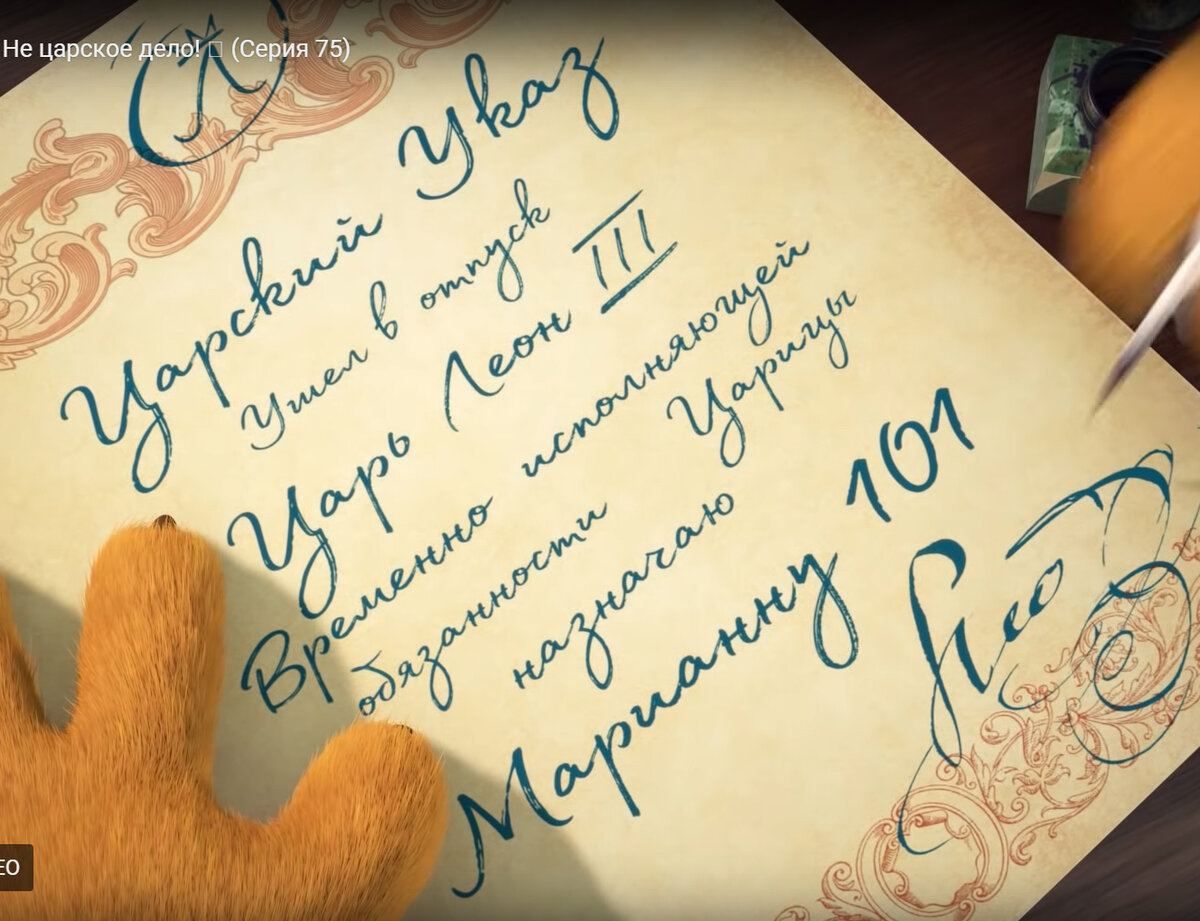 Не царское дело! (Серия 75)
Царский Указ
Ушел в отпуск
Царь Леон III
Временно исполняющей
обязанности Царицы
назначаю
Марианну 101
Лео
ЕО